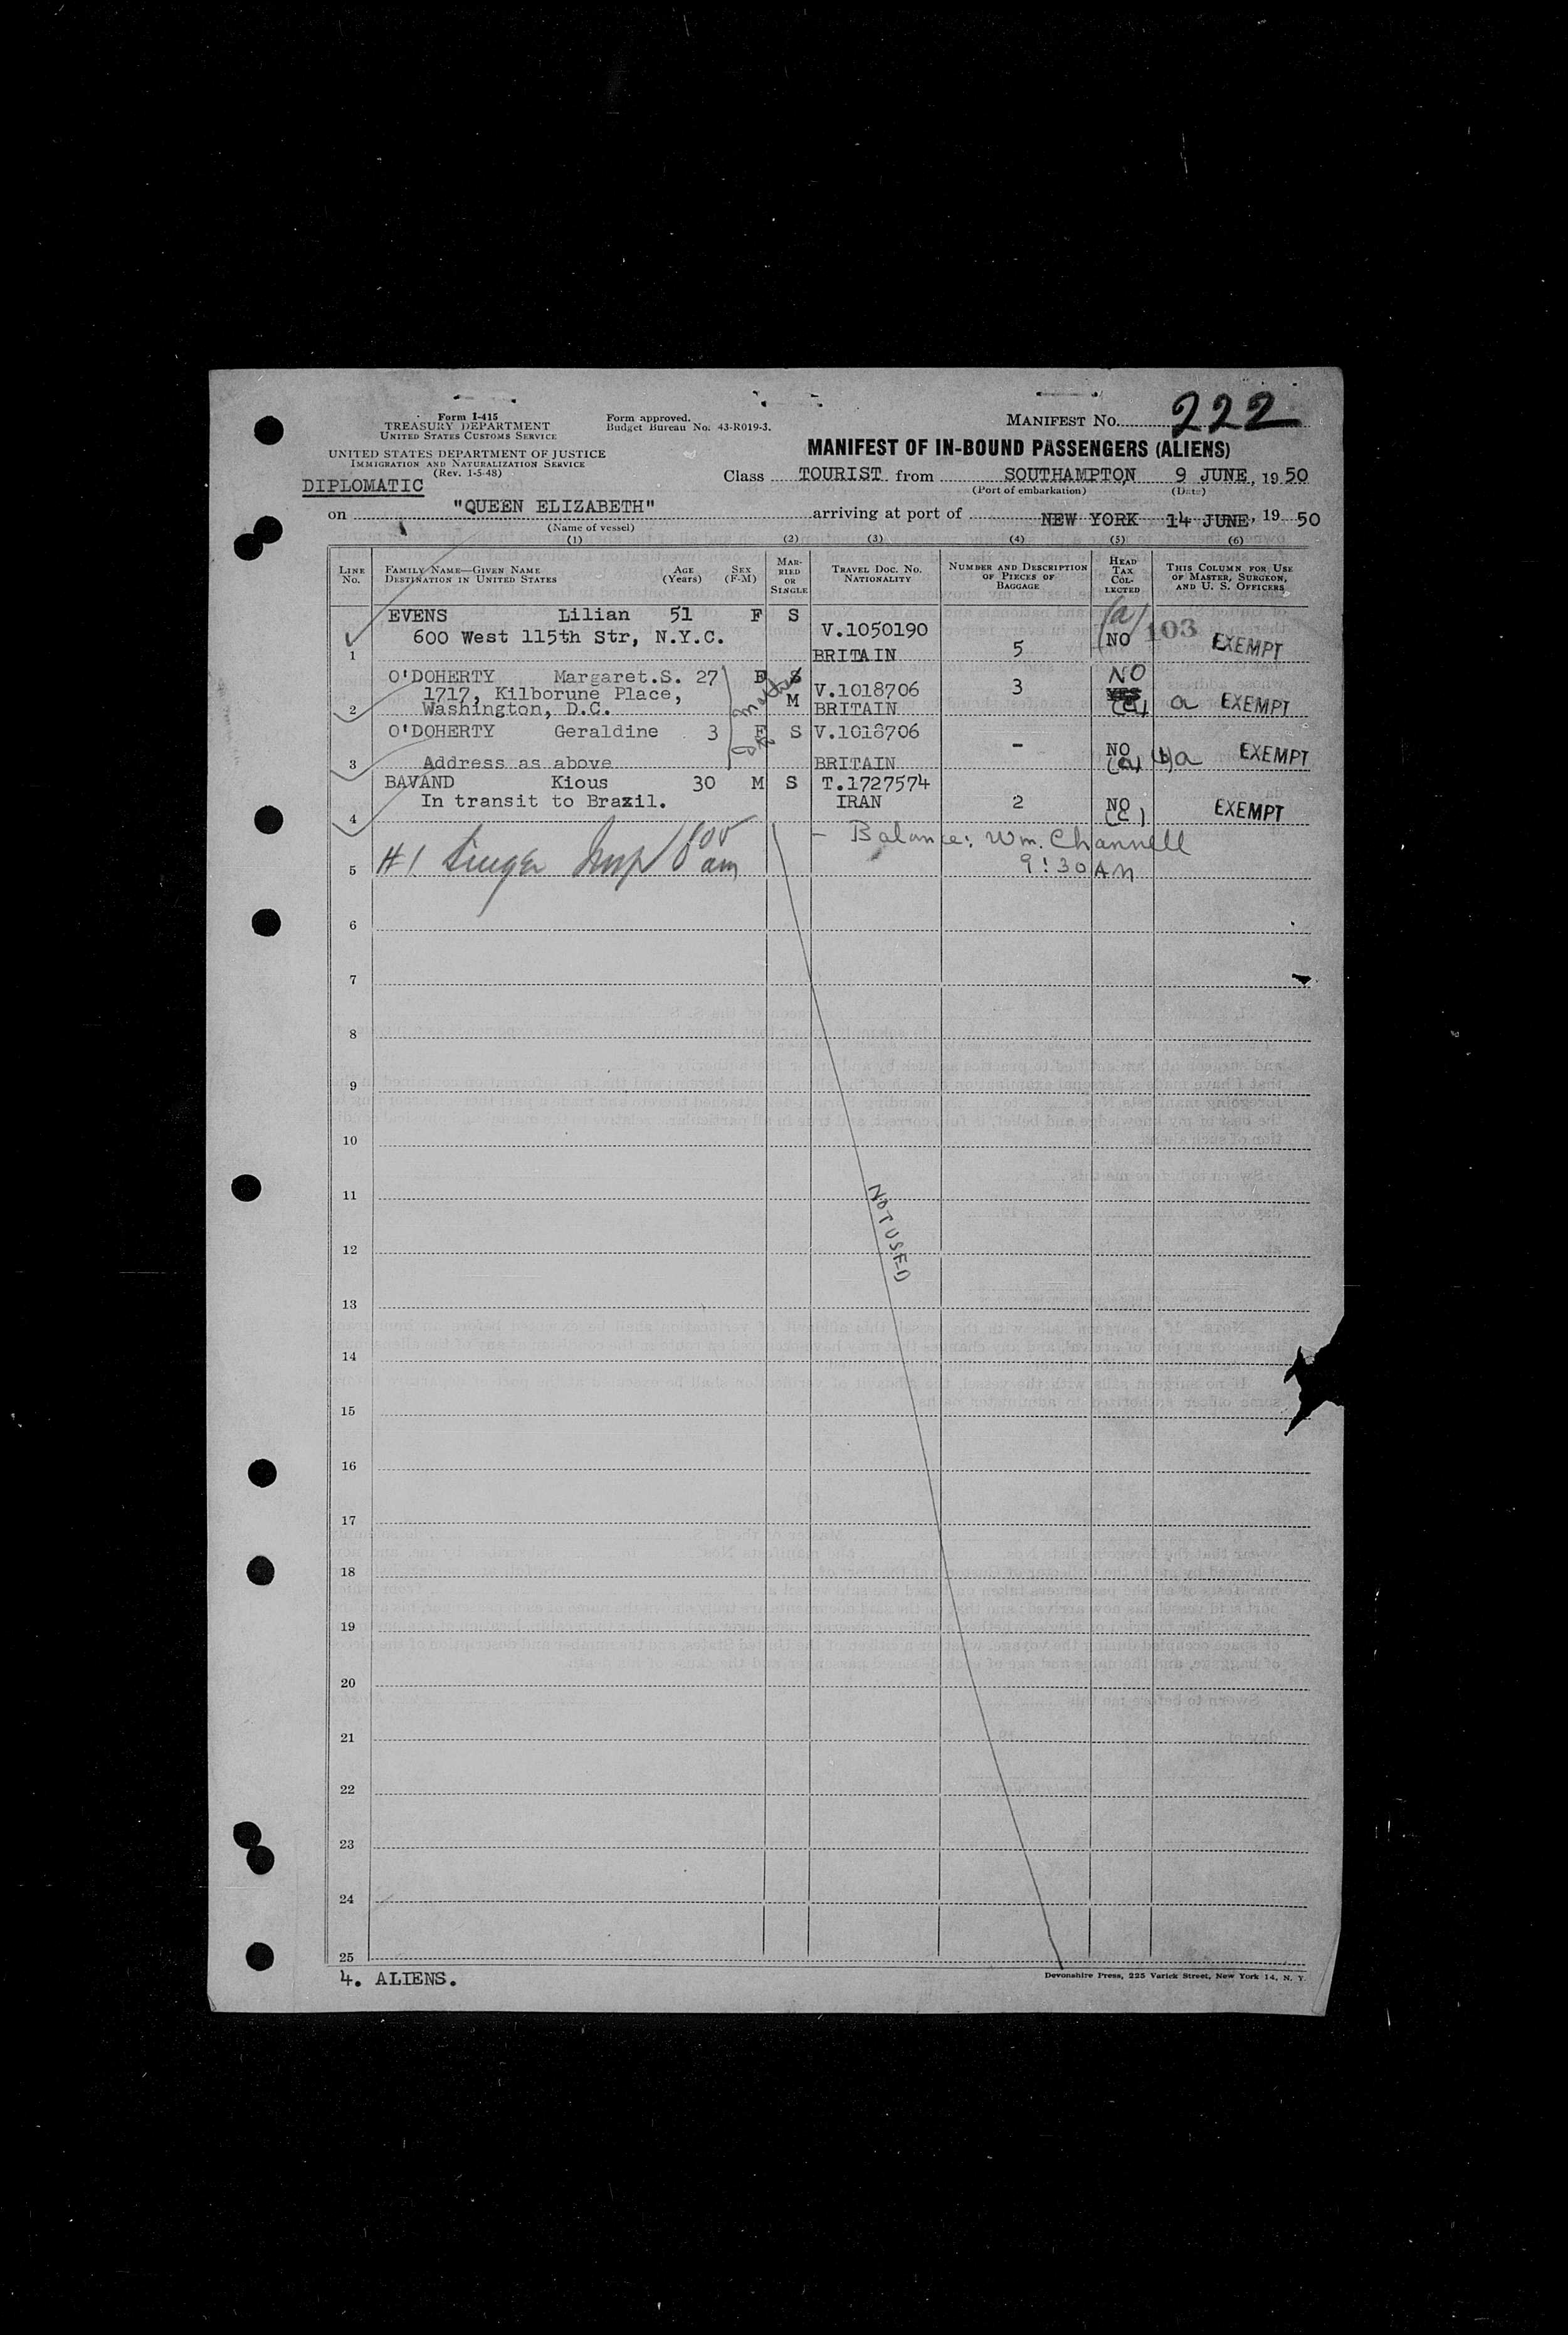 Form I-415
TREASURY DEPARTMENT
UNITED STATES CUSTOMS SERVICE
UNITED STATES DEPARTMENT OF JUSTICE
IMMIGRATION AND NATURALIZATION SERVICE
(Rev. 1-5-48)
DIPLOMATIC
Form approved.
Budget Bureau No. 43-R019-3.
MANIFEST No. 222
MANIFEST OF IN-BOUND PASSENGERS (ALIENS)
Class TOURIST from SOUTHAMPTON 9 JUNE, 1950
(Port of embarkation) (Date)
on "QUEEN ELIZABETH" arriving at port of NEW YORK 14 JUNE, 19 50
(Name of vessel)
(1) (2) (3) (4) (5) (6)
LINE No. FAMILY NAME—GIVEN NAME DESTINATION IN UNITED STATES AGE (Years) SEX (F-M) MARRIED OR SINGLE TRAVEL DOC. No. NATIONALITY NUMBER AND DESCRIPTION OF PIECES OF BAGGAGE HEAD TAX COLLECTED THIS COLUMN FOR USE OF MASTER, SURGEON, AND U. S. OFFICERS
EVENS Lilian 51 F S (a)
600 West 115th Str, N.Y.C. V.1050190 NO 103
1 BRITAIN 5 EXEMPT
O'DOHERTY Margaret.S. 27 F S NO
1717, Kilborune Place, M V.1018706 3 YES
2 Washington, D.C. BRITAIN (a) a EXEMPT
O'DOHERTY Geraldine 3 F S V.1018706
- NO EXEMPT
3 Address as above BRITAIN (a) a
BAVAND Kious 30 M S T.1727574
In transit to Brazil. IRAN 2 NO EXEMPT
4 (c)
- Balance: Wm. Channell
5 #1 Singer Insp 8 00 am 9:30 AM
6
7
8
9
10
11
NOT USED
12
13
14
15
16
17
18
19
20
21
22
23
24
25
4. ALIENS.
Devonshire Press, 225 Varick Street, New York 14, N. Y.